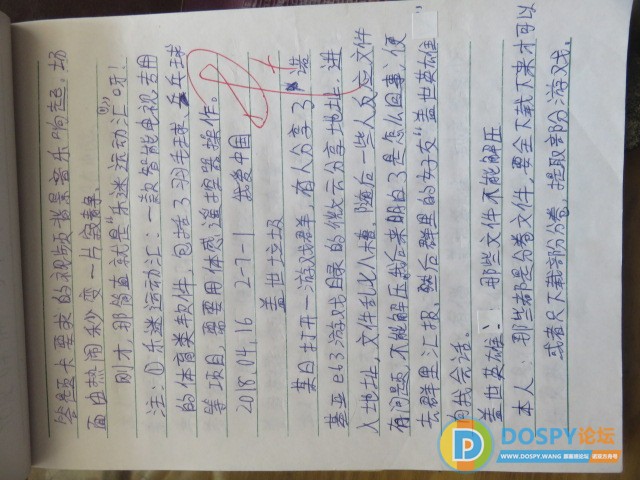 答题卡要求的视频背景音乐响起，场
面由热闹秒变一片寂静。
刚才，那简直就是"乐迷运动汇"呀！
注：①乐迷运动汇：一款智能电视专用
的体育类软件，包括了羽毛球、乒乓球
等项目，需要用体感遥控器操作。
2018.04.16 2-7-1 我爱中国
盖世垃圾
某日打开一游戏群，有人分享了诺
基亚e63游戏目录的微云分享地址，进
入地址，文件乱七八糟，随后一些人反应文件
有问题，不能解压，我后来明白了是怎么回事，便
去群里汇报，然后群里的好友"盖世英雄
向我会话。
盖世英雄： 那些文件不能解压
本人：那些都是分卷文件，要全下载下来才可以
或者只下载部分分卷，提取部分游戏。
DOSPY论坛
WWW.DOSPY.WANG